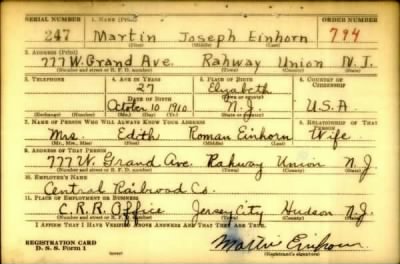 SERIAL NUMBER 1. NAME (Print) ORDER NUMBER
247 Martin Joseph Einhorn 794
(First) (Middle) (Last)
2. ADDRESS (Print)
777 W. Grand Ave. Rahway Union N.J.
(Number and street or R. F. D. number) (Town) (County) (State)
3. TELEPHONE 4. AGE IN YEARS 5. PLACE OF BIRTH 6. COUNTRY OF CITIZENSHIP
27 Elizabeth
DATE OF BIRTH (Town or county)
October 10 1910 N.J. U.S.A
(Exchange) (Number) (Mo.) (Day) (Yr.) (State or country)
7. NAME OF PERSON WHO WILL ALWAYS KNOW YOUR ADDRESS 8. RELATIONSHIP OF THAT PERSON
Mrs. Edith Roman Einhorn Wife
(Mr., Mrs., Miss) (First) (Middle) (Last)
9. ADDRESS OF THAT PERSON
777 W. Grand Ave. Rahway Union N.J
(Number and street or R. F. D. number) (Town) (County) (State)
10. EMPLOYER'S NAME
Central Railroad Co.
11. PLACE OF EMPLOYMENT OR BUSINESS
C.R.R. Office Jersey City Hudson N.J.
(Number and street or R. F. D. number) (Town) (County) (State)
I AFFIRM THAT I HAVE VERIFIED ABOVE ANSWERS AND THAT THEY ARE TRUE.
REGISTRATION CARD
D. S. S. Form 1 Martin Einhorn
(Registrant's signature)